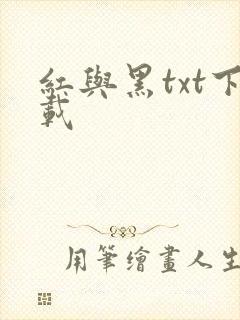 紅與黑txt下
載
用筆繪畫人生